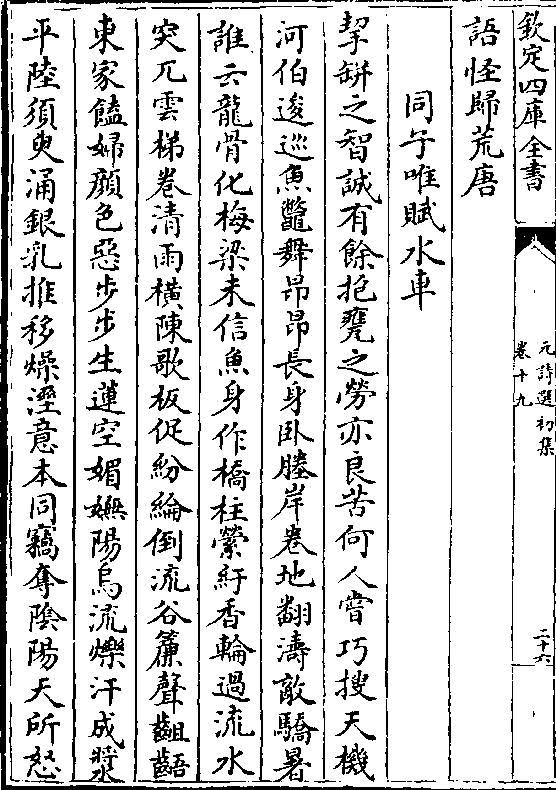 欽定四庫全書
元詩選初集
卷十九
二十六
語怪歸荒唐
同子唯賦水車
挈缾之智誠有餘抱甕之勞亦良苦何人嘗巧搜天機
河伯逡巡魚鼈舞昂昂長身卧塍岸卷地翻濤敵驕暑
誰云龍骨化梅梁未信魚身作橋柱縈紆香輪過流水
突兀雲梯卷清雨横陳歌板促紛綸倒流谷簾聲齟齬
東家饁婦顔色惡步步生蓮空媚嫵陽烏流爍汗成漿
平陸須臾涌銀乳推移燥溼意本同竊奪陰陽天所怒